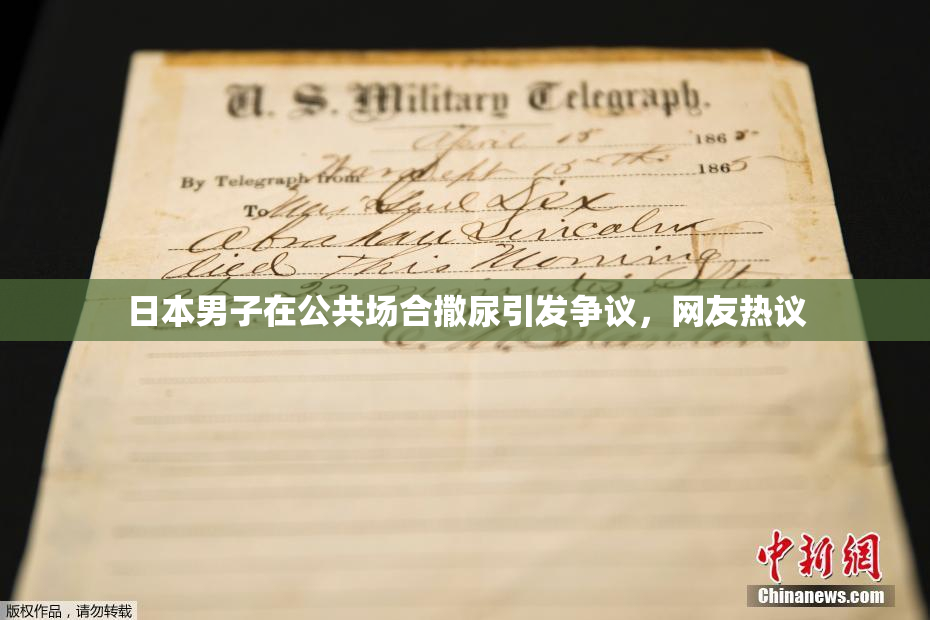 U. S. Military Telegraph.
April 15 1865
By Telegraph from War Dept 15th 1865
To Maj Genl Dix
Abraham Lincoln
died This Morning
at 22 minutes after
日本男子在公共场合撒尿引发争议，网友热议
E. M. Stanton
中新网
Chinanews.com
版权作品，请勿转载